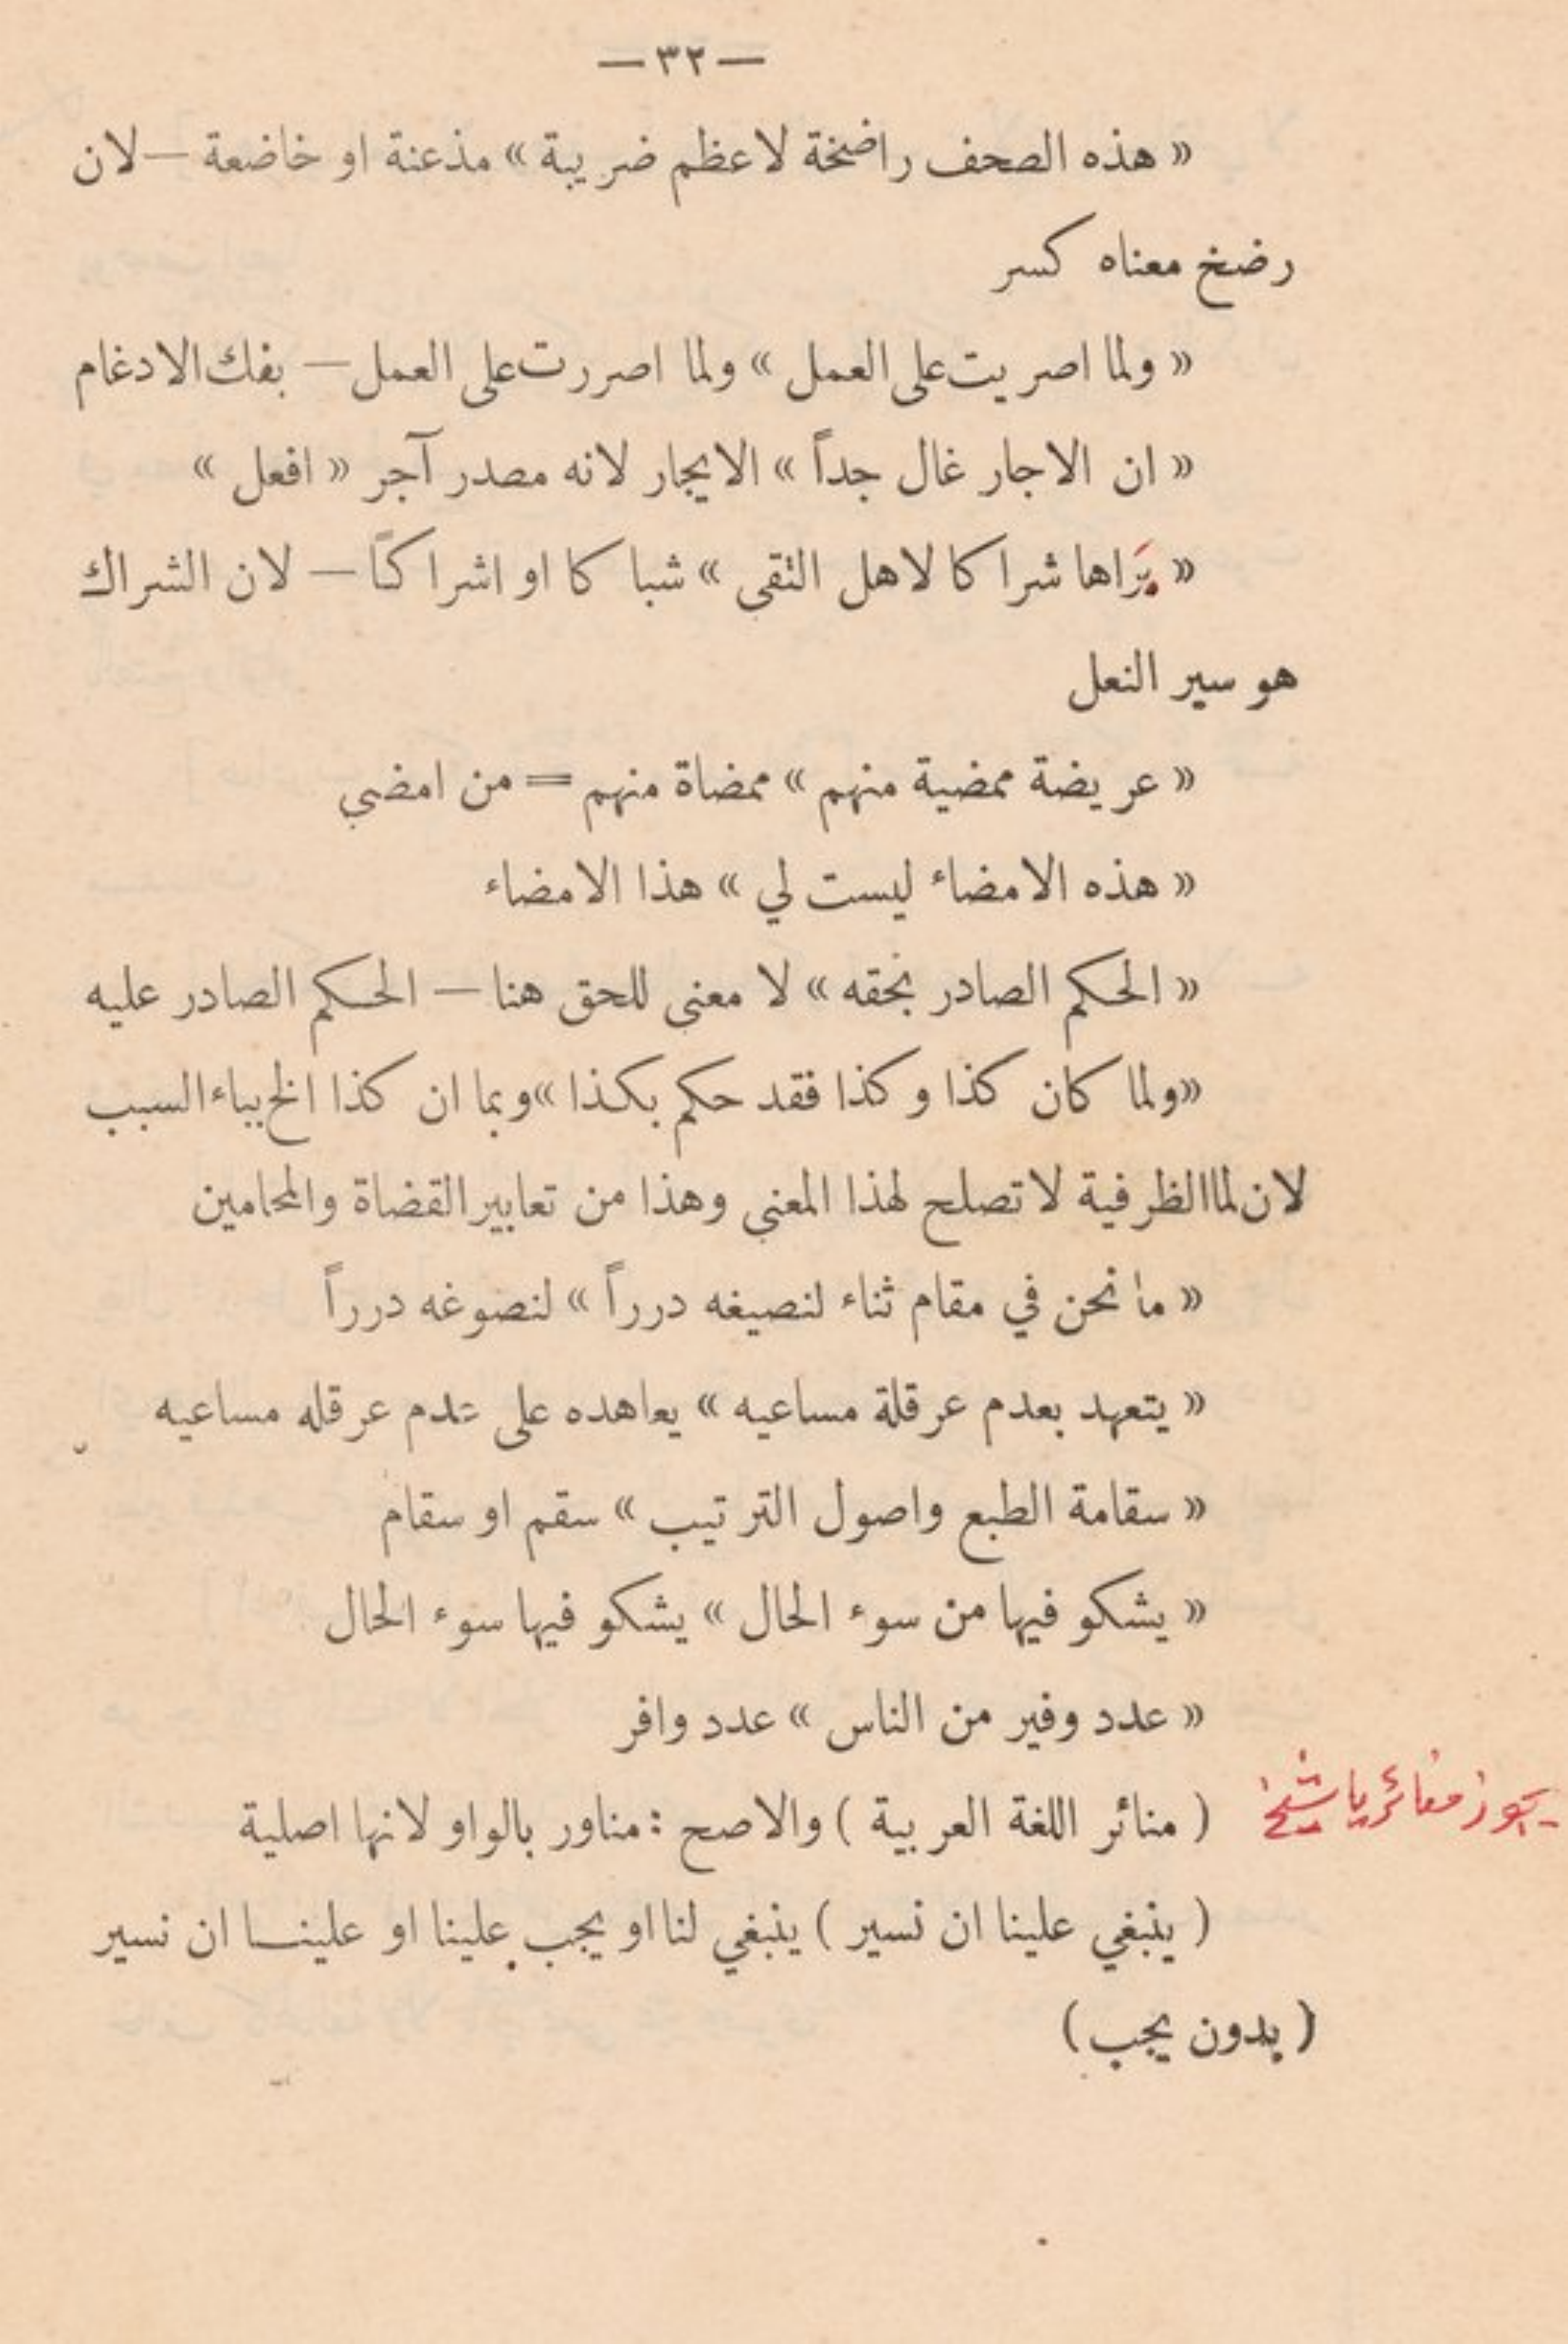 — ٣٢ —
« هذه الصحف راضخة لاعظم ضريبة » مذعنة او خاضعة — لان
رضخ معناه كسر
« ولما اصريت على العمل » ولما اصررت على العمل — بفك الادغام
« ان الاجار غال جداً » الايجار لانه مصدر آجر « افعل »
« يَراها شراكا لاهل التقى » شباكا او اشراكاً — لان الشراك
هو سير النعل
« عريضة ممضية منهم » ممضاة منهم = من امضى
« هذه الامضاء ليست لي » هذا الامضاء
« الحكم الصادر بحقه » لا معنى للحق هنا — الحكم الصادر عليه
« ولما كان كذا وكذا فقد حكم بكذا » وبما ان كذا الخ بباء السبب
لان لما الظرفية لا تصلح لهذا المعنى وهذا من تعابير القضاة والمحامين
« ما نحن في مقام ثناء لنصيغه درراً » لنصوغه درراً
« يتعهد بعدم عرقلة مساعيه » يعاهده على عدم عرقله مساعيه
« سقامة الطبع واصول الترتيب » سقم او سقام
« يشكو فيها من سوء الحال » يشكو فيها سوء الحال
« عدد وفير من الناس » عدد وافر
( منائر اللغة العربية ) والاصح : مناور بالواو لانها اصلية
يجوز منائر يا شيخ
( ينبغي علينا ان نسير ) ينبغي لنا او يجب علينا او علينا ان نسير
( بدون يجب )